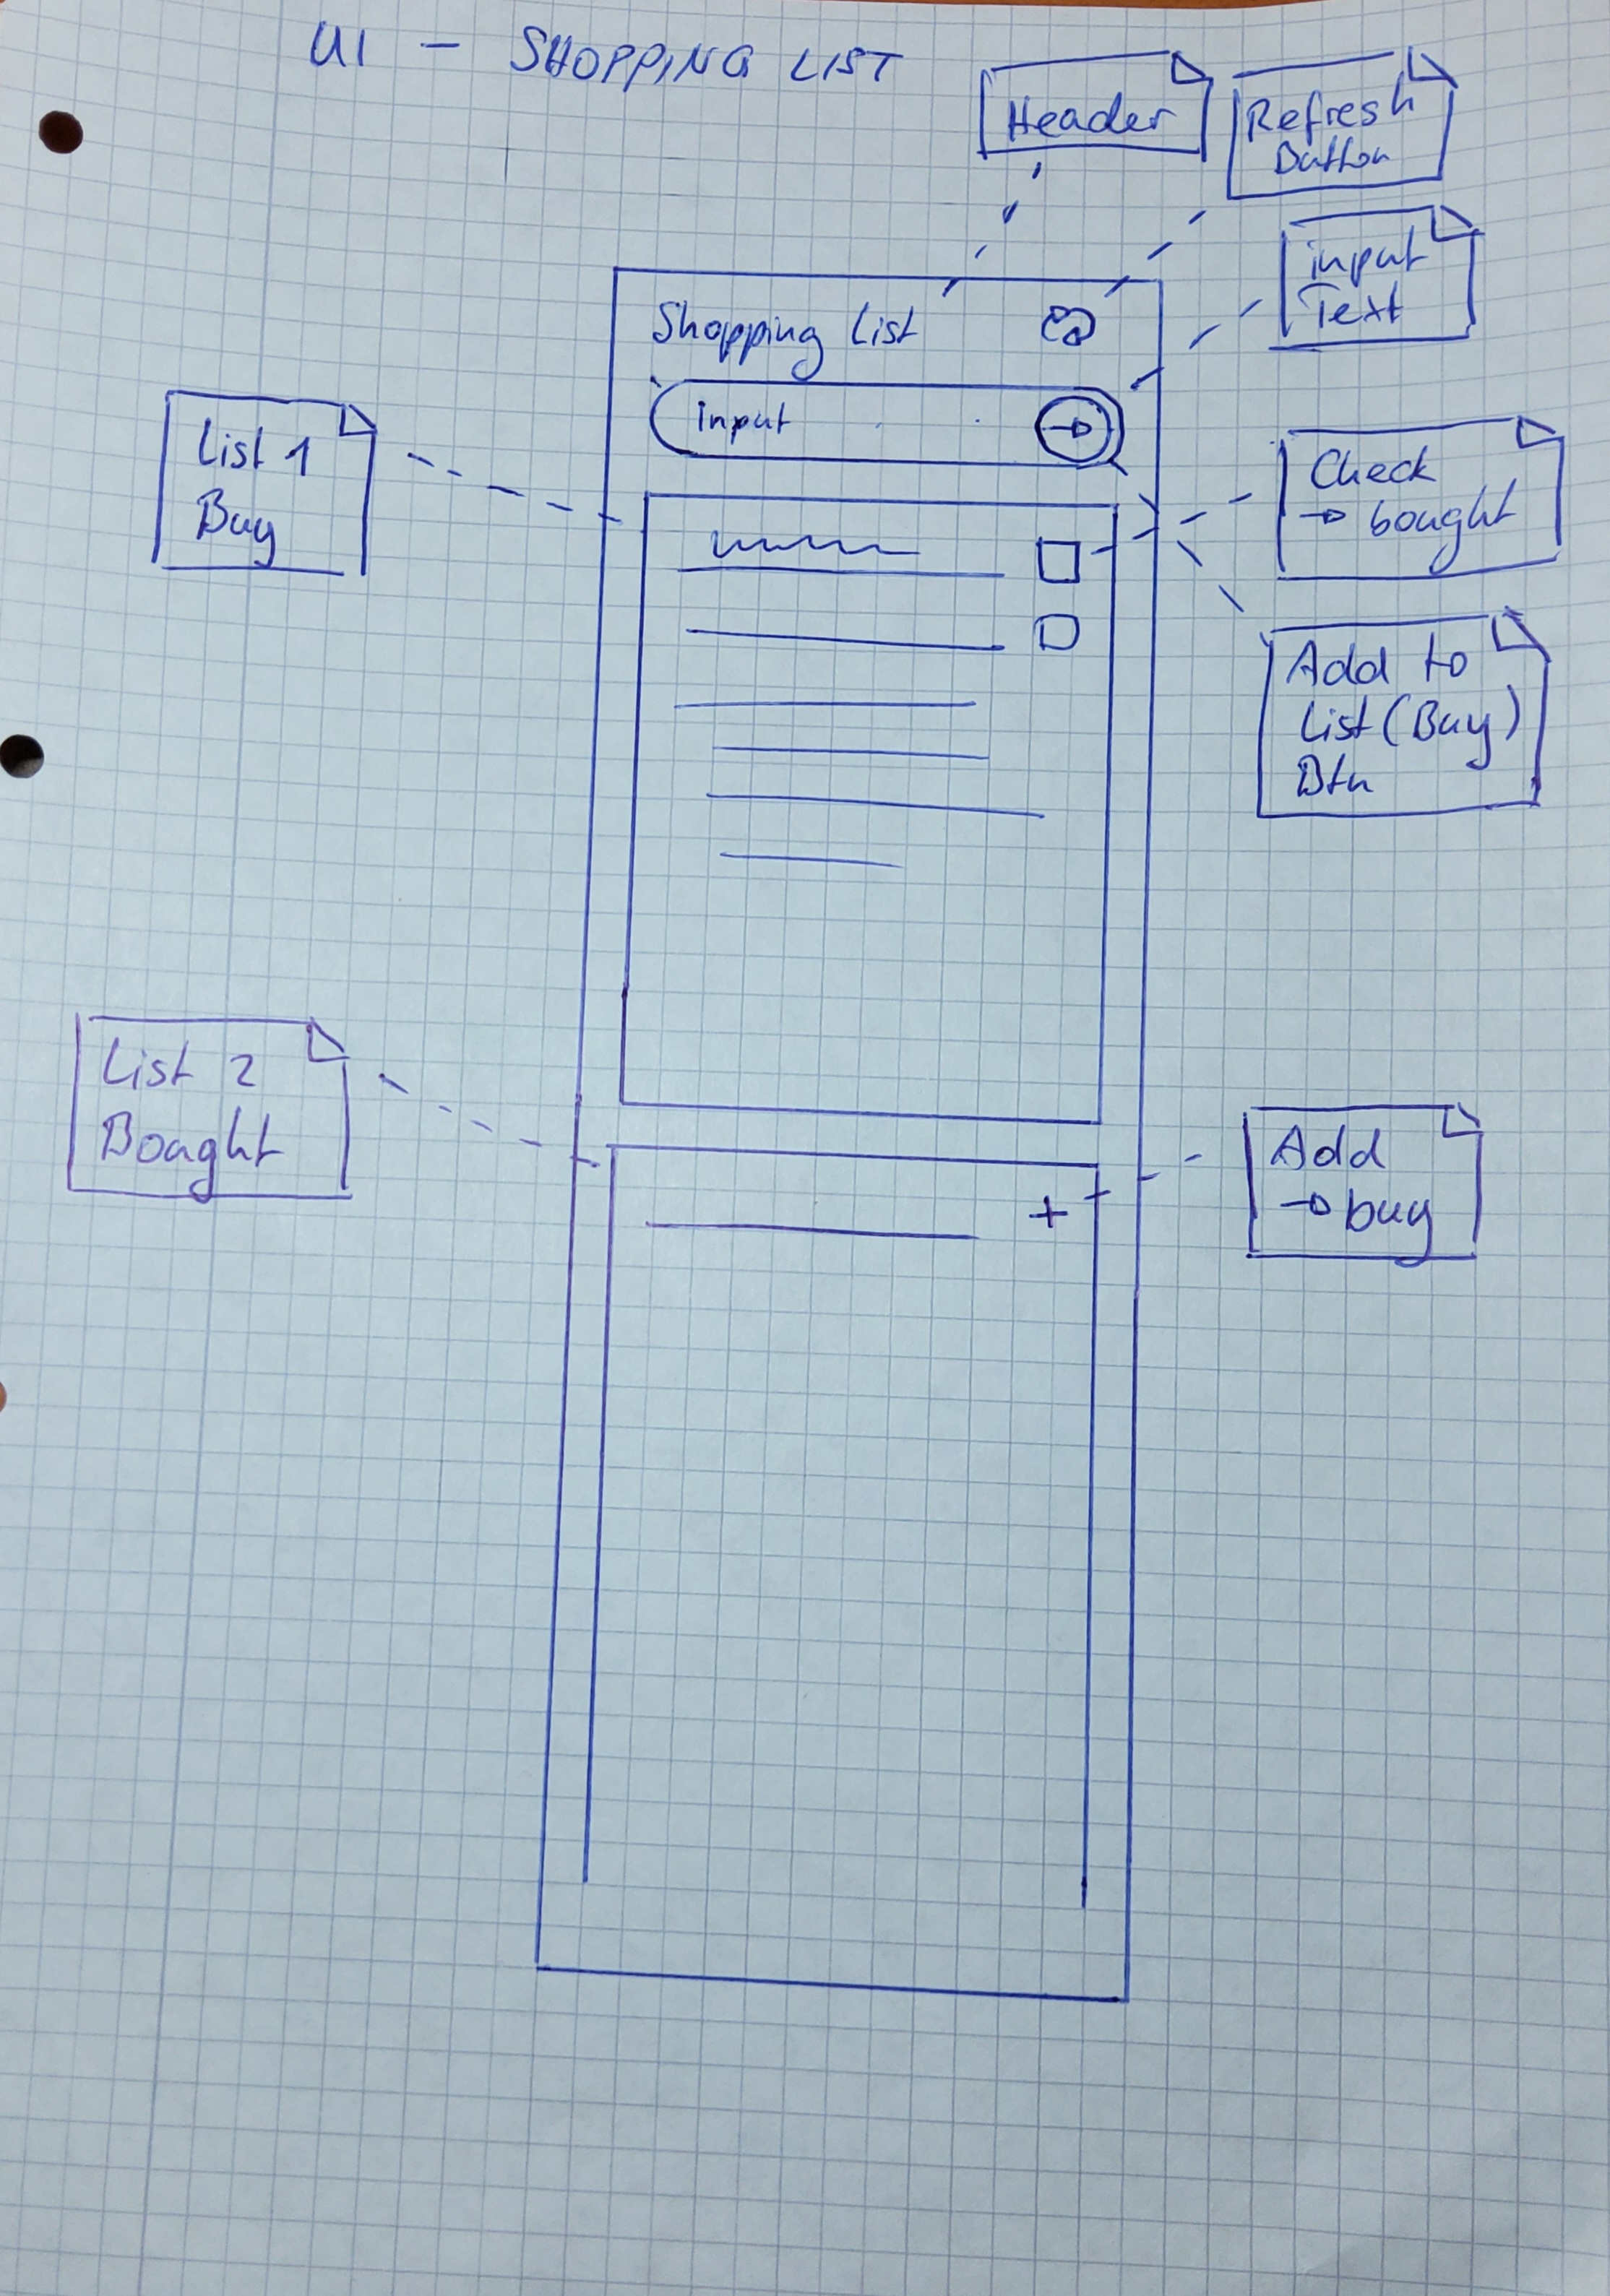 UI - SHOPPING LIST
Header
Refresh
Button
input
Text
Shopping List
input
List 1
Buy
Check
→ bought
Add to
List (Buy)
Btn
List 2
Bought
Add
→ buy
+